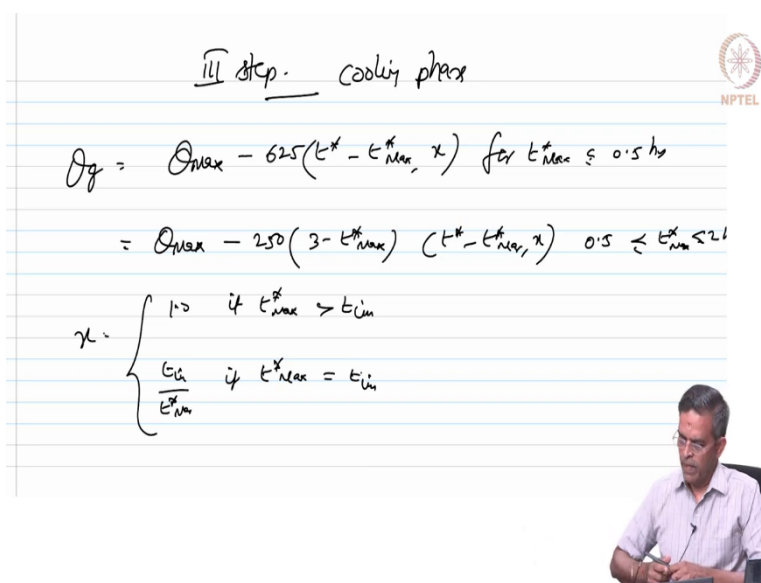 III step. cooling phase
NPTEL
θg = θmax - 625 (t* - t*max, x) for t*max ≤ 0.5 hr
= θmax - 250 (3 - t*max) (t* - t*max, x) 0.5 ≤ t*max ≤ 2h
x = { 1.0 if t*max > tlim
tlim / t*max if t*max = tlim